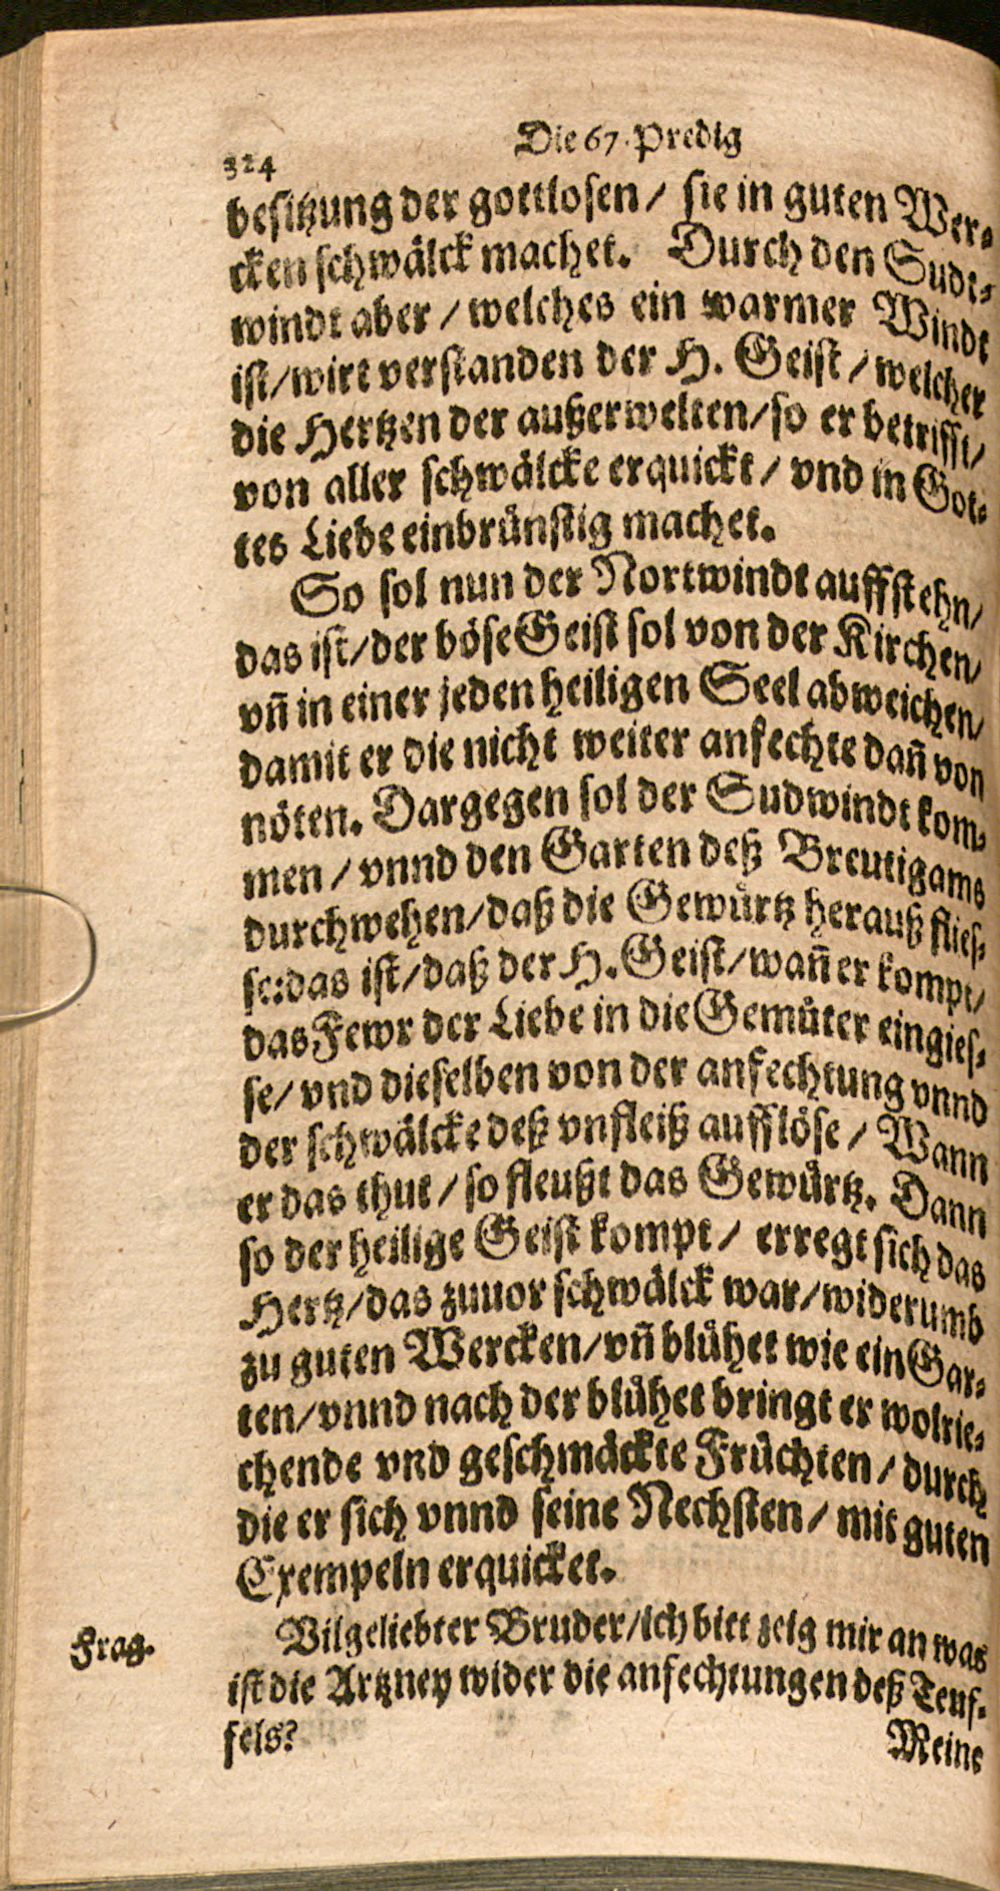 324
Die 67. Predig
besitzung der gottlosen / sie in guten Wer-
cken schwälck machet. Durch den Sudt-
windt aber / welches ein warmer Windt
ist / wirt verstanden der H. Geist / welcher
die Hertzen der außerwelten / so er betrifft /
von aller schwälcke erquickt / vnd in Got-
tes Liebe einbrünstig machet.
So sol nun der Nortwindt auffstehn /
das ist / der böse Geist sol von der Kirchen /
vñ in einer jeden heiligen Seel abweichen /
damit er die nicht weiter anfechte dañ von
nöten. Dargegen sol der Sudwindt kom-
men / vnnd den Garten deß Breutigams
durchwehen / daß die Gewürtz herauß flies-
se: das ist / daß der H. Geist / wañ er kompt /
das Fewr der Liebe in die Gemüter eingies-
se / vnd dieselben von der anfechtung vnnd
der schwälcke deß vnfleiß aufflöse / Wann
er das thut / so fleußt das Gewürtz. Dann
so der heilige Geist kompt / erregt sich das
Hertz / das zuuor schwälck war / widerumb
zu guten Wercken / vñ blühet wie ein Gar-
ten / vnnd nach der blühet bringt er wolrie-
chende vnd geschmäckte Früchten / durch
die er sich vnnd seine Nechsten / mit guten
Exempeln erquicket.
Frag.
Vilgeliebter Bruder / ich bitt zeig mir an was
ist die Artzney wider die anfechtungen deß Teuf-
fels?
Meine